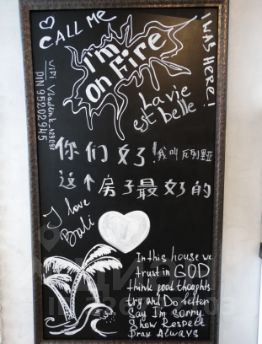 CALL ME
I WAS HERE!
I'm
on Fire
La vie
est belle
你们好!
这个房子最好的
I love
Bali
In this house we
trust in GOD
think good thoughts
try and Do better
Say I'm sorry
Show Respect
Pray Always